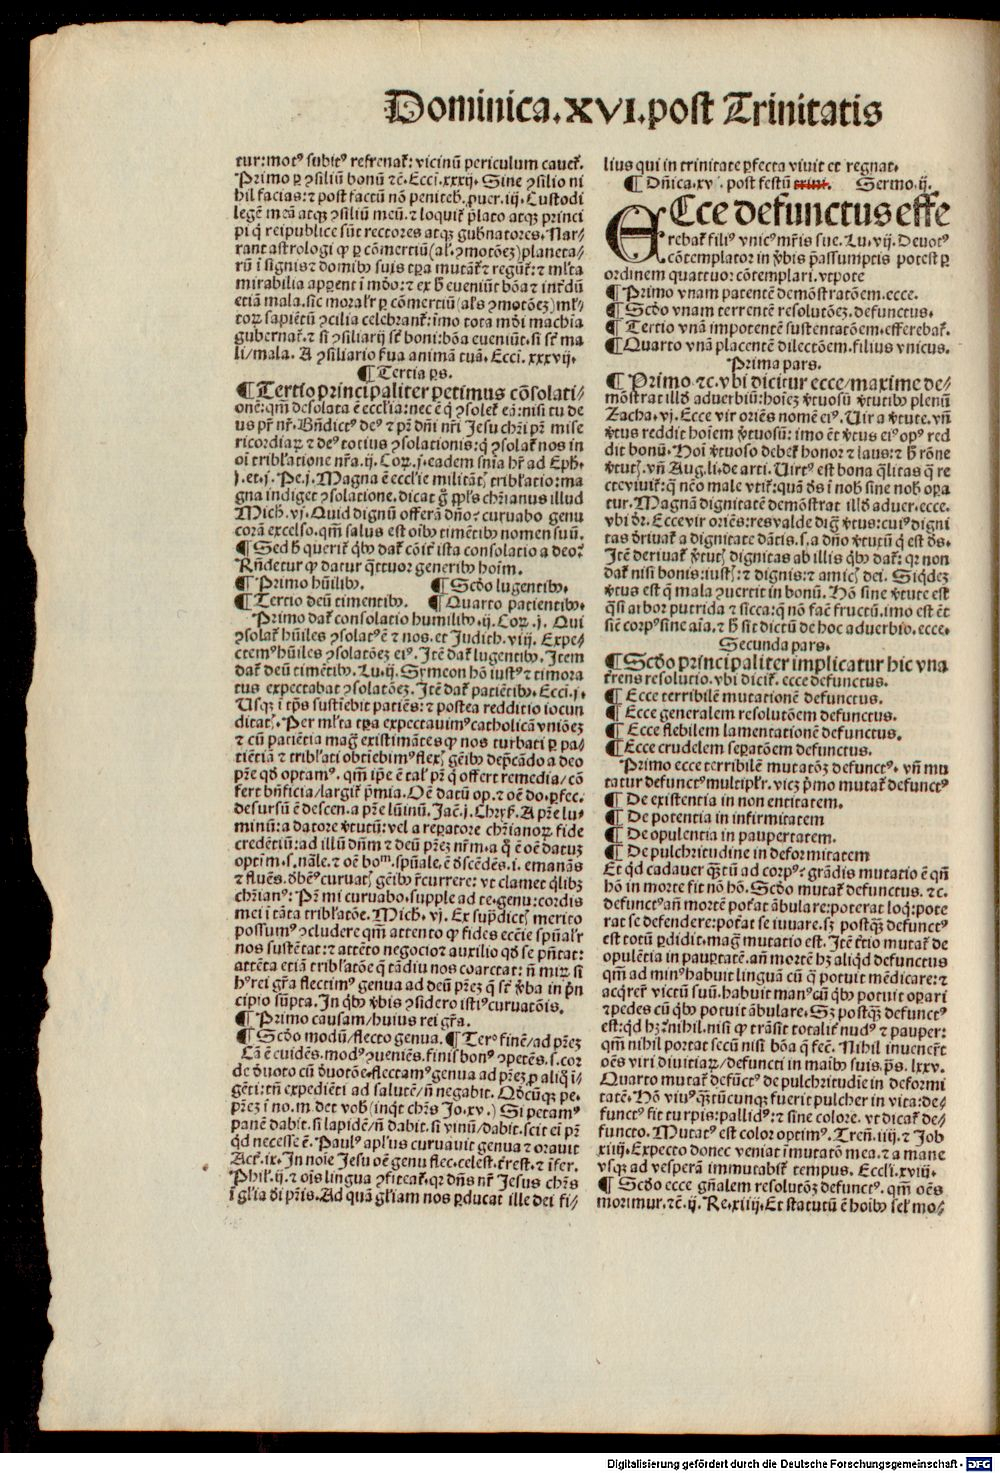 Dominica.XVI.post Trinitatis
tur:motꝰ subitꝰ refrenat̉: vicinū periculum cauet̉.
Primo ꝑ ꝯsiliū bonū ⁊c̄. Ecci.xxxij. Sine ꝯsilio ni
hil facias:⁊ post factū nō peniteb̉.ꝓuer.iij. Custodi
legē meā atqꝫ ꝯsiliū meū.⁊ loquit̉ p̄lato atqꝫ princi
pi q̄ reipublice sūt rectores atqꝫ gub̉natores. Nar⸗
rant astrologi ꝙ ꝑ cōmertiū(al̉.ꝯmotōeꝫ)planeta⸗
rū ī signis ⁊ domibꝰ suis tꝑa mutāt̉ ⁊ regūt̉:⁊ ml̉ta
mirabilia apparent ī mūdo:⁊ ex h̉ eueniūt bōa ⁊ interdū
etiā mala.sic moral̉r ꝑ cōmertiū(al̉s ꝯmotōeꝫ)ml̉⸗
toꝝ sapiētū ꝯcilia celebrant̉:īmo tota mūdi machīa
gubernat̉.⁊ si ꝯsiliarij sūt boni:bōa eueniūt.si sūt ma
li/mala. A ꝯsiliario serua animā tuā. Ecci.xxxvij.
¶ Tertia ꝑs.
¶ Tertio principaliter petimus cōsolati⸗
onē:qm̄ desolata ē eccl̉ia:nec ē q̄ ꝯsolet̉ eā:nisi tu de
us pr̄ nr̄. Bn̄dictꝰ deꝰ ⁊ pr̄ dn̄i nr̄i Jesu chr̄i pr̄ mise
ricordiaꝝ ⁊ deꝰ totius ꝯsolationis:q̄ ꝯsolat̉ nos in
oī tribl̉atione nr̄a.ij. Coꝝ.j.eadem sn̄ia hr̄ ad Eph̉.
j.et.j. Pe.j. Magna ē eccl̉ie militātꝭ tribl̉atio:ma
gna indiget ꝯsolatione.dicat ḡ ppl̉s chr̄ianus illud
Mich.vj. Quid dignū offerā dn̄o? curuabo genu
corā excelso.qm̄ salus est oībꝰ timētibꝰ nomen suū.
¶ Sed h̉ querit̉ q̄bꝰ dat̉ cōīt̉ ista consolatio a deo?
Rn̄detur ꝙ datur q̄ttuor generibꝰ hoīm.
¶ Primo hūilibꝰ. ¶ Scd̉o lugentibꝰ.
¶ Tertio deū timentibꝰ. ¶ Quarto patientibꝰ.
Primo dat̉ consolatio humilibꝰ.ij. Coꝝ.j. Qui
ꝯsolat̉ hūiles ꝯsolatꝰ ē ⁊ nos.et Judith.viij. Expe⸗
ctemꝰ hūiles ꝯsolatōeꝫ eiꝰ. Itē dat̉ lugentibꝰ. Item
dat̉ deū timētibꝰ. Lu.ij. Symeon hō iustꝰ ⁊ timora
tus expectabat ꝯsolatōeꝫ. Itē dat̉ patiētibꝰ. Ecci.j.
Usqꝫ ī tp̄s sustīebit patiēs:⁊ postea redditio iocun
ditatꝭ. Per ml̉ta tꝑa expectauimꝰ catholicā vniōeꝫ
⁊ cū patiētia mag̉ existimātes ꝙ nos turbati ꝑ pa⸗
tiētiā ⁊ tribl̉ati obtīebimꝰ flexꝭ gēibꝰ dep̄cādo a deo
pr̄e qd̉ optamꝰ. qm̄ ip̄e ē tal̉ pr̄ q̄ offert remedia/cō
fert bn̄ficia/largit̉ p̄mia. Oē datū op.⁊ oē do.ꝑfec.
desursū ē descen.a pr̄e lu̅inū. Jac̉.j. Chryẞ. A pr̄e lu⸗
minū:a datore ẜtutū:vel a reꝑatore chr̄ianoꝝ fide
credētiū:ad illū dn̄m ⁊ deū pr̄eꝫ nr̄m.a q̄ ē oē datuꝫ
optīm.s.nāle.⁊ oē boᵐ.spūale.ē d̉scēdēs.i. emanās
⁊ fluēs.d̉bēꝰ curuatꝭ gēibꝰ r̄currere: vt clamet q̄libꝫ
chr̄ianꝰ: Pr̄ mi curuabo.supple ad te.genu:cordis
mei ī tāta tribl̉atōe. Mich.vj. Ex sup̄dictꝭ merito
possumꝰ ꝯcludere qm̄ attento ꝙ fides ecc̄ie spūal̉r
nos sustētat:⁊ attēto negocio ⁊ auxilio qd̉ se pn̄tat:
attēta etiā tribl̉atōe q̄ tādiu nos coarctat: n̄ mirꝝ si
hꝰ rei gr̄a flectimꝰ genua ad deū pr̄eꝫ q̄ sūt ẜba in p̄n
cipio sūpta. In q̄bꝰ ẜbis ꝯsidero istiꝰ curuatōis.
¶ Primo causam/huius rei gr̄a.
¶ Scd̉o modū/flecto genua. ¶ Ter° finē/ad pr̄eꝫ
Cā ē euidēs.modꝰ ꝯueniēs.finis bonꝰ ꝯpetēs.s.cor
de d̉uoto cū d̉uotōe.flectamꝰ genua ad pr̄eꝫ.ꝓ aliq̄ ī⸗
gēti:tn̄ expediēti ad salutē/n̄ negabit. Qd̉cūqꝫ pe.
pr̄eꝫ ī no.m.det vob̉(inq̄t chr̄s Jo.xv.) Si petamꝰ
panē dabit.si lapidē/n̄ dabit.si vinū/dabit.scit eī pr̄
qd̉ necesse ē. Paulꝰ apl̉us curuauit genua ⁊ orauit
Act̉.ix. In noīe Jesu oē genu flec.celest.t̄rest.⁊ īfer.
Phil̉.ij.⁊ oīs lingua ꝯfiteat̉.qꝛ dn̄s nr̄ Jesus chr̄s
ī gl̉ia dī pr̄is. Ad quā gl̉iam nos ꝑducat ille dei fi⸗
lius qui in trinitate ꝑfecta viuit et regnat.
¶ Dn̄ica.xv . post festū trini. Sermo.ij.
ECce defunctus effe
rebat̉ filiꝰ vnicꝰ mr̄is sue. Lu.vij. Deuotꝰ
cōtemplator in ẜbis p̄assumptis potest ꝑ
ordinem quattuor cōtemplari.vtpote
¶ Primo vnam patentē demōstratōem.ecce.
¶ Scd̉o vnam terrentē resolutōeꝫ.defunctus.
¶ Tertio vnā impotentē sustentatōem.efferebat̉.
¶ Quarto vnā placentē dilectōem.filius vnicus.
Prima pars.
¶ Primo ⁊c.vbi dicitur ecce/maxime de⸗
mōstrat illd̉ aduerbiū:hoīeꝫ ẜtuosū ẜtutibꝰ plenū
Zacha.vj. Ecce vir oriēs nomē eiꝰ. Uir a ẜtute.vn̄
ẜtus reddit hoīem ẜtuosū:imo ēt ẜtus eiꝰ opꝰ red
dit bonū. Hoī ẜtuoso debet̉ honor ⁊ laus:⁊ h̉ rōne
ẜtutꝭ.vn̄ Aug.li.de arti. Uirtꝰ est bona q̄litas q̄ re
cte viuit̉:q̄ nēo male vtit̉:quā d̉s ī nob̉ sine nob̉ oꝑa
tur. Magnā dignitatē demōstrat illd̉ aduer.ecce.
vbi dr̄. Ecce vir oriēs:res valde digᷓ ẜtus:cuiꝰ digni
tas d̉riuat̉ a dignitate dātis.s.a dn̄o ẜtutū q̄ est d̉s.
Itē deriuat̉ ẜtutꝭ dignitas ab illis q̄bꝰ dat̉: qꝛ non
dat̉ nisi bonis:iustꝭ:⁊ dignis:⁊ amicꝭ dei. Siqd̉eꝫ
ẜtus est q̄ mala ꝯuertit in bonū. Hō sine ẜtute est
q̄si arbor putrida ⁊ sicca:q̄ nō facit̉ fructū.imo est ēt
sic̄ corpꝰ sine aīa.⁊ h̉ sit dictū de hoc aduerbio.ecce.
Secunda pars.
¶ Scd̉o principaliter implicatur hic vna
t̄rens resolutio.vbi dicit̉.ecce defunctus.
¶ Ecce terribilē mutationē defunctus.
¶ Ecce generalem resolutōem defunctus.
¶ Ecce flebilem lamentationē defunctus.
¶ Ecce crudelem seꝑatōem defunctus.
Primo ecce terribilē mutatōꝫ defunctꝰ. vn̄ mu
tatur defunctꝰ multipl̉r.vicꝫ p̄mo mutat̉ defunctꝰ
¶ De existentia in non entitatem.
¶ De potentia in infirmitatem
¶ De opulentia in paupertatem.
¶ De pulchritudine in deformitatem
Et qd̉ cadauer q̄tū ad corpꝰ? grādis mutatio ē qn̄
hō in morte fit nō hō. Scd̉o mutat̉ defunctus. ⁊c.
defunctꝰ an̄ mortē pot̄at ābulare:poterat loqi:pote
rat se defendere:pot̄at se iuuare.sꝫ postq̄ꝫ defunctꝰ
est totū ꝑdidit.mag̉ mutatio est. Itē t̄tio mutat̉ de
opulētia in pauꝑtatē.an̄ mortē hꝫ aliqd̉ defunctus
qm̄ ad minꝰ habuit linguā cū q̄ potuit mēdicare:⁊
acq̄rer̉ victū suū.habuit manꝰ cū q̄bꝰ potuit oꝑari
⁊ pedes cū q̄bꝰ potuit ābulare. Sꝫ postq̄ꝫ defunctꝰ
est:qd̉ hꝫ? nihil.nisi ꝙ trāsit totalit̉ nudꝰ ⁊ pauper:
qm̄ nihil portat secū nisi bōa q̄ fec̉. Nihil inuener̄t
oēs viri diuitiaꝝ/defuncti in maībꝰ suis.p̄s.lxxv.
Quarto mutat̉ defūctꝰ de pulchritudīe in deformi
tatē. Hō viuꝰ q̄tūcunqꝫ fuerit pulcher in vita:de⸗
functꝰ fit turpis:pallidꝰ:⁊ sine colore. vt dicat̉ de⸗
functo. Mutatꝰ est color optimꝰ. Tren̄.iiij.⁊ Job
xiiij. Expecto donec veniat īmutatō mea.⁊ a mane
vsqꝫ ad vesperā immutabit̉ tempus. Eccl̉i.xviij.
¶ Scd̉o ecce gn̄alem resolutōꝫ defunctꝰ. qm̄ oēs
morimur.⁊c̄.ij. Re.xiiij. Et statutū ē hoībꝰ sel̉ mo⸗
Digitalisierung gefördert durch die Deutsche Forschungsgemeinschaft - DFG